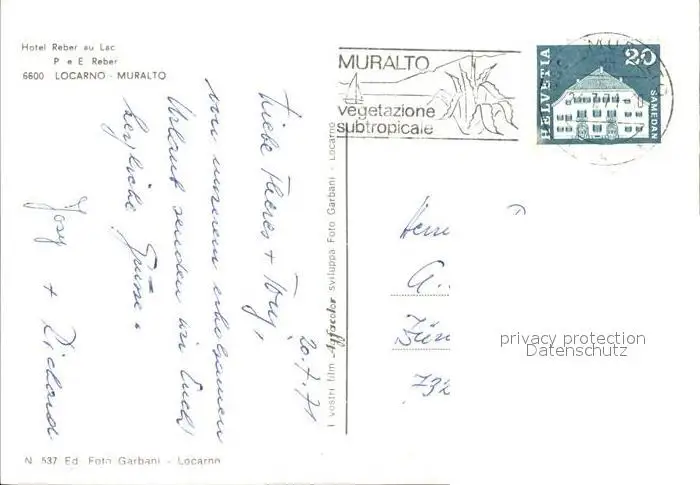 Hotel Reber au Lac
P e E Reber
6600 LOCARNO - MURALTO
MURALTO
vegetazione
subtropicale
HELVETIA
20
SAMEDAN
20.7.71
Liebe Theres + Tony,
von unserem erholsamen
Urlaub senden wir Euch
herzliche Grüsse.
Josy + Richard
I vostri film Agfacolor sviluppa Foto Garbani - Locarno
Herrn
A.
732
privacy protection
Datenschutz
N 537 Ed. Foto Garbani - Locarno